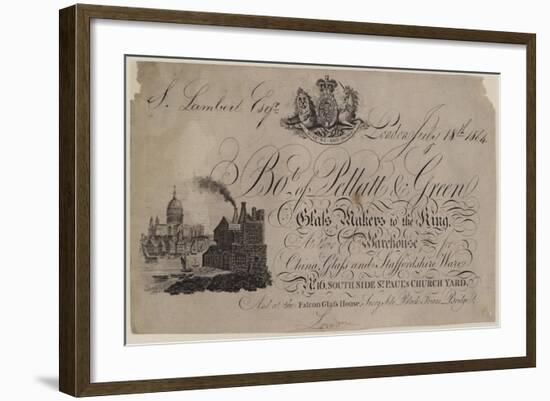 S. Lambert Esqr.
London July 18th 1804
Bot. of Pellatt & Green
Glass Makers to the King.
At their Warehouse for
China, Glass and Staffordshire Ware
No. 16, SOUTH SIDE St. PAUL'S CHURCH YARD,
And at the Falcon Glass House, Surry Side Black Friars Bridge
London